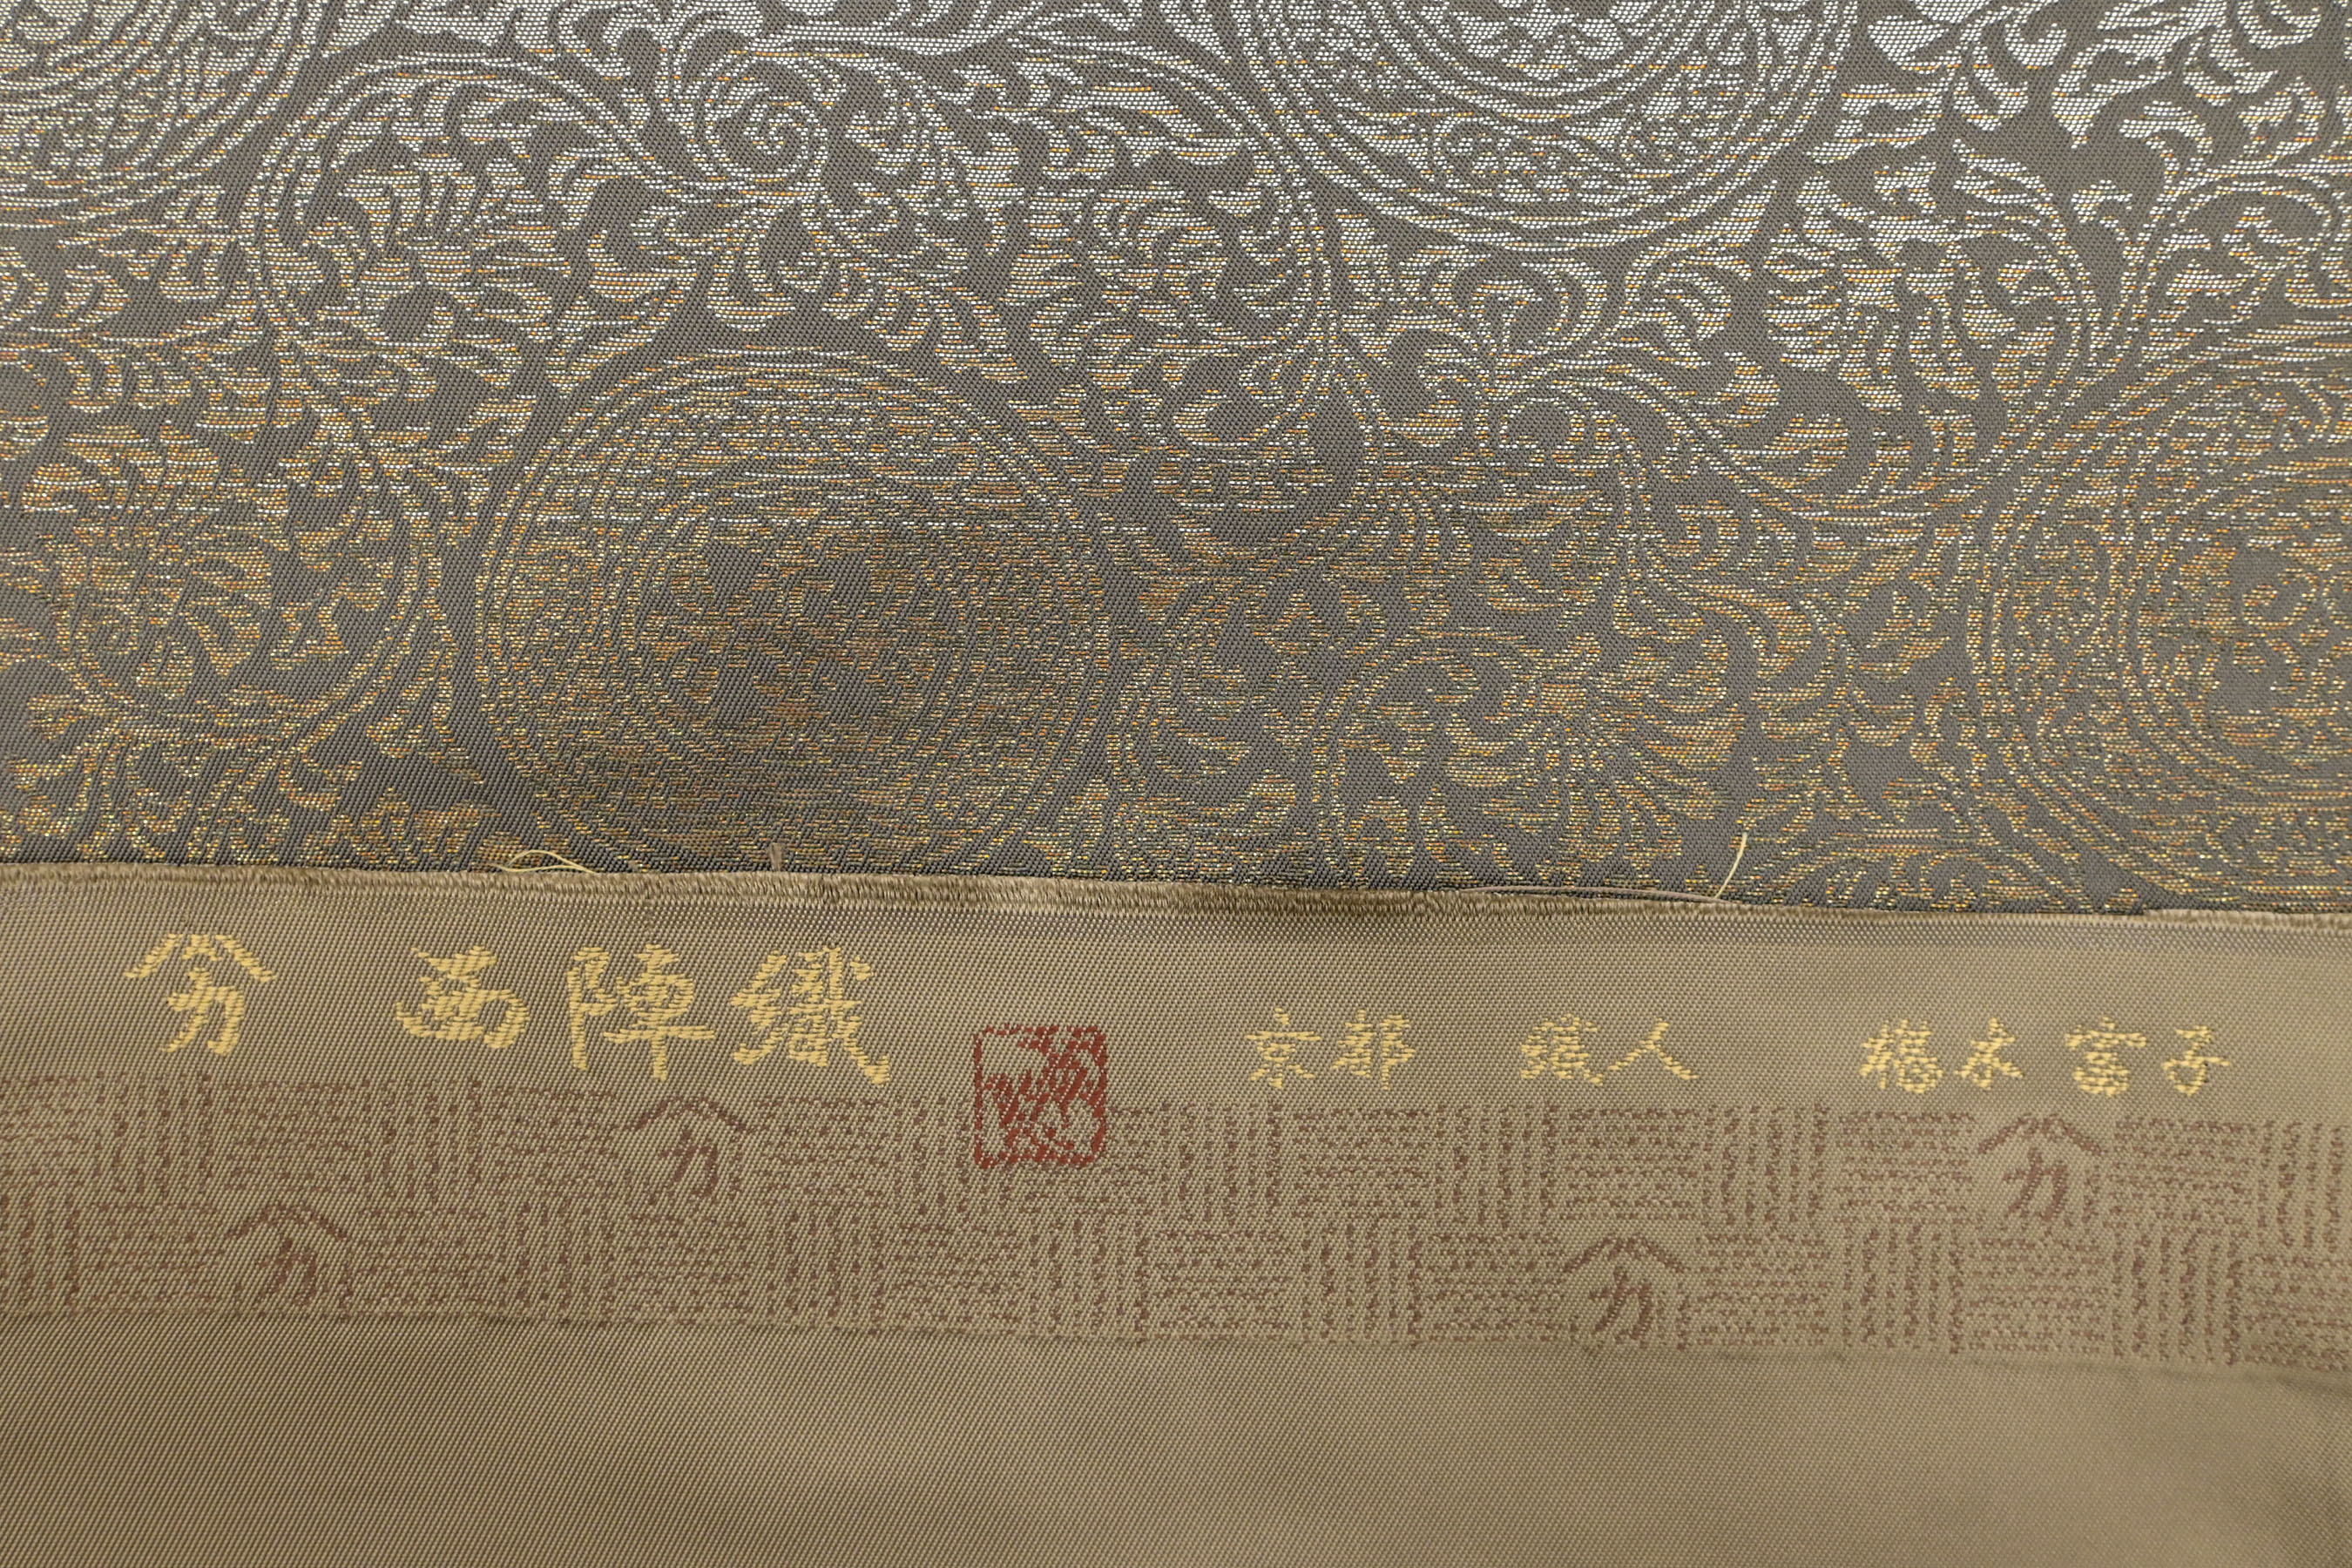 西陣織 京都 織人 橋本富子